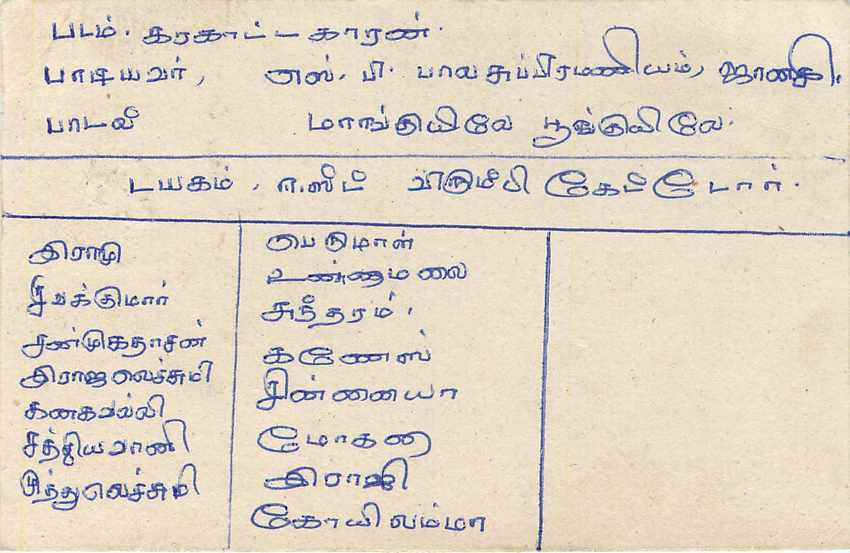 படம். கரகாட்டகாரன்.
பாடியவர், எஸ். பி. பாலசுப்பிரமணியம், ஜானகி.
பாடல் மாங்குயிலே பூங்குயிலே.
டயகம். விரும்பி கேட்டோர்.
இராழி
சிவக்குமார்
சண்முகதாசன்
இராஜலெச்சுமி
கனகவல்லி
சத்தியவாணி
முத்துலெச்சுமி
பெருமாள்
உண்ணாமலை
சுந்தரம்.
கணேஸ்
சின்னையா
மோகன
இராஜி
கோயிலம்மா